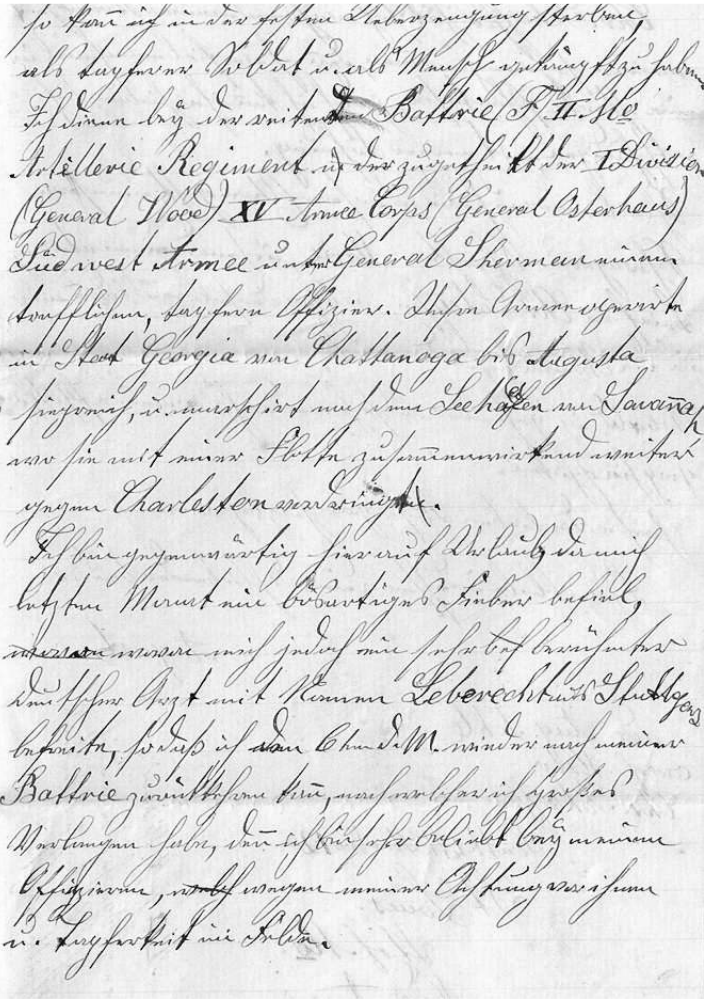 so kann ich in der festen Ueberzeugung sterben,
als tapferer Soldat u. als Mensch gekämpft zu haben
Ich diene bey der reitenden Battrie (F. II Mo
Artillerie Regiment u. der zugetheilt der I Division
(General Wood) XV Armee Corps (General Osterhaus)
Südwest Armee unter General Sherman einem
trefflichen, tapfern Offizier. Unsre Armee operirte
in Staat Georgia von Chattanoga bis Augusta
siegreich, u. marschirt nach dem Seehafen von Savannah
wo sie mit einer Flotte zusammenwirkend weiter
gegen Charleston vordringt.
Ich bin gegenwärtig hier auf Urlaub, da mich
letzten Monat ein bösartiges Fieber befiel,
wovon wovon mich jedoch ein sehr bef berühmter
deutscher Arzt mit Namen Leberecht aus Stuttgart
befreite, so daß ich den 6ten d. M. wieder nach meiner
Battrie zurükkehren kann, nach welcher ich großes
Verlangen habe, denn ich bin sehr beliebt bey meinen
Offizieren, welch wegen meiner Achtung vor ihnen
u. Tapferkeit im Felde.